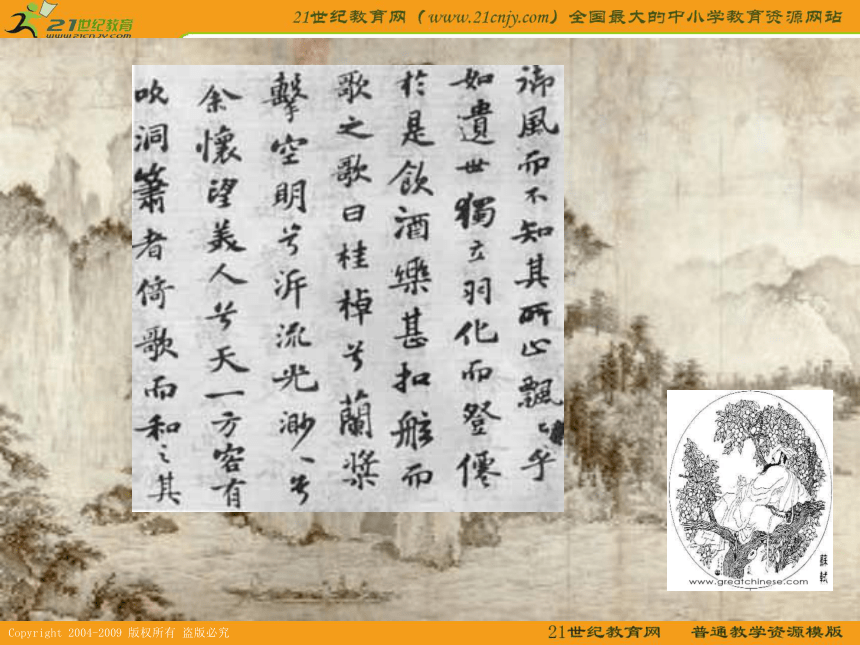 21世纪教育网
www.21cnjy.com
21世纪教育网（www.21cnjy.com）全国最大的中小学教育资源网站
御風而不知其所止飄〻乎
如遺世獨立羽化而登僊
於是飲酒樂甚扣舷而
歌之歌曰桂棹兮蘭槳
擊空明兮泝流光渺〻兮
余懷望美人兮天一方客有
吹洞簫者倚歌而和之其
蘇軾
www.greatchinese.com
Copyright 2004-2009 版权所有 盗版必究
21世纪教育网 普通教学资源模版